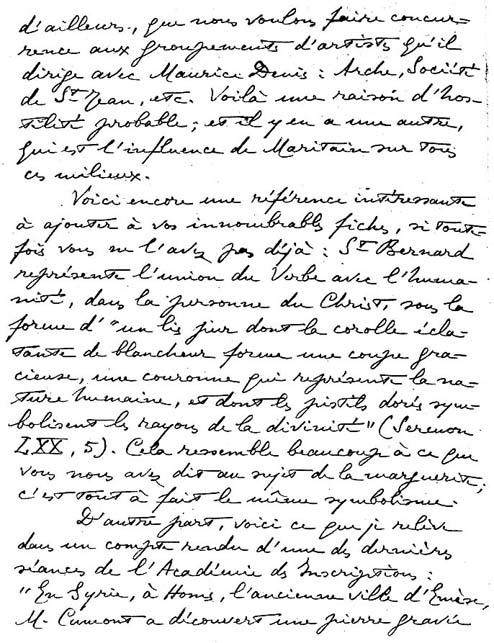 d'ailleurs, que nous voulons faire concur-
rence aux groupements d'artistes qu'il
dirige avec Maurice Denis : Arche, Société
de St Jean, etc. Voilà une raison d'hos-
tilité probable ; et il y en a une autre,
qui est l'influence de Maritain sur tous
ces milieux.
Voici encore une référence intéressante
à ajouter à vos innombrables fiches, si toute-
fois vous ne l'avez pas déjà : St Bernard
représente l'union du Verbe avec l'huma-
nité, dans la personne du Christ, sous la
forme d'"un lis pur dont la corolle écla-
tante de blancheur forme une coupe gra-
cieuse, une couronne qui représente la na-
ture humaine, et dont les pistils dorés sym-
bolisent les rayons de la divinité" (Sermon
LXX, 5). Cela ressemble beaucoup à ce que
vous nous avez dit au sujet de la marguerite ;
c'est tout à fait le même symbolisme.
D'autre part, voici ce que je relève
dans un compte rendu d'une des dernières
séances de l'Académie des Inscriptions :
"En Syrie, à Homs, l'ancienne ville d'Emèse,
M. Cumont a découvert une pierre gravée